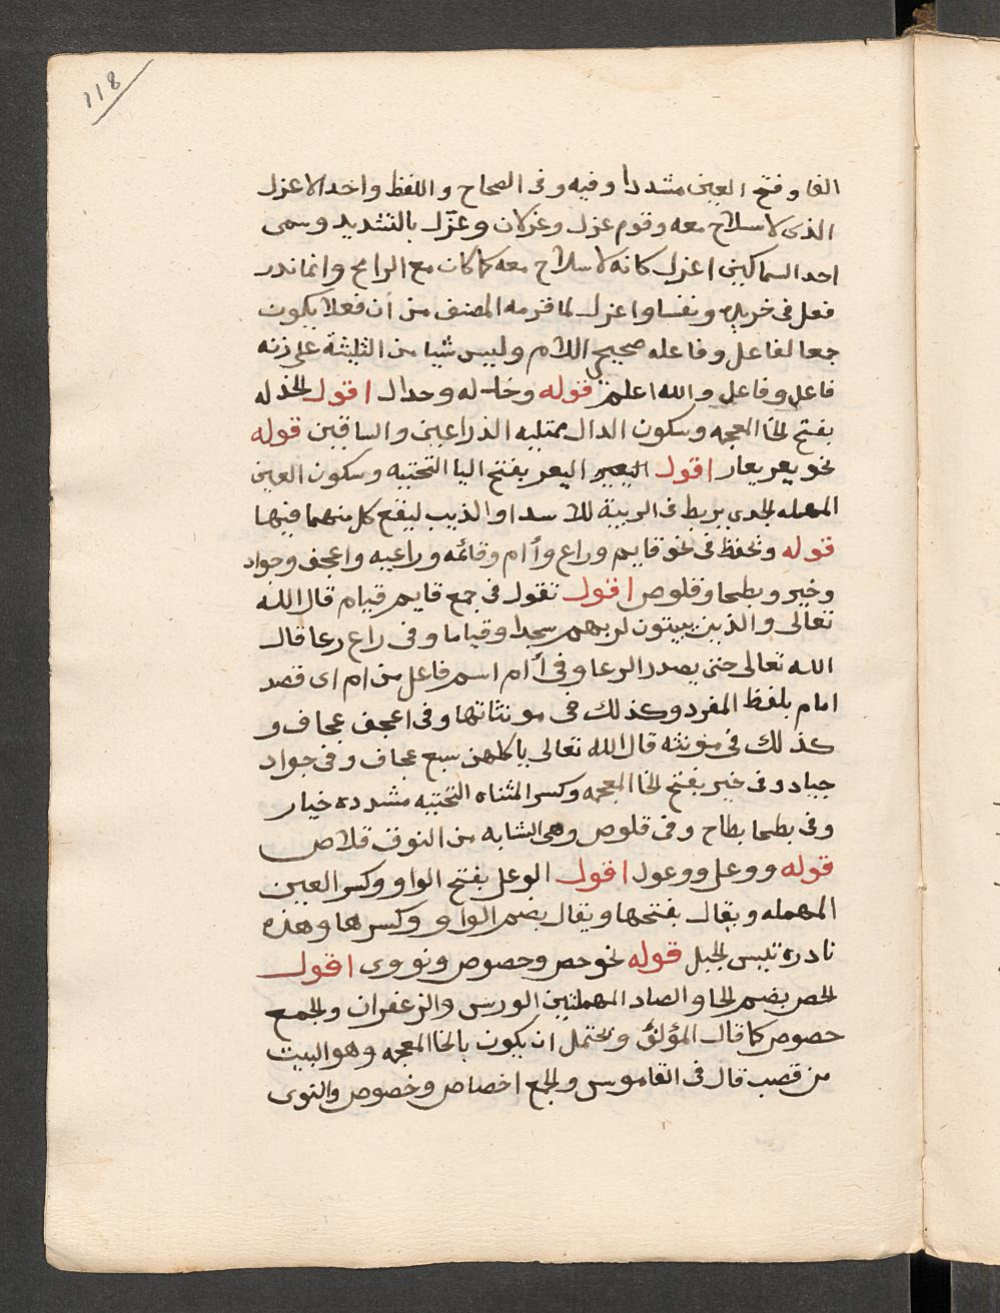 118
الفا وفتح العين مشددا وفيه وفى الصحاح واللفظ واحد الاعزل
الذى لا سلاح معه وقوم عزل وعزلان وعزّل بالتشديد وسمى
احد السماكين اعزل كانه لا سلاح معه كما كان مع الرامح وانما ندر
فعل فى خريده ونفسا واعزل لما قدمه المصنف من أن فعلا يكون
جمعا لفاعل وفاعله صحيحى اللام وليس شيا من الثلثة على زنه
فاعل وفاعل والله اعلم قوله وخدله وخدال اقول الخدله
بفتح الخا المعجمه وسكون الدال ممتليه الذراعين والساقين قوله
نحو يعر يعار اقول اليعر بفتح اليا التحتيه وسكون العين
المهمله الجدى يربط فى الربية للاسد او الذيب ليقع كل منهما فيها
قوله وتحفظ فى نحو قايم وراع وآام وقائمه وراعيه واعجف وجواد
وخير وبطحا وقلوص اقول تقول فى جمع قايم قيام قال الله
تعالى والذين يبيتون لربهم سجدا وقياما وفى راع رعا قال
الله تعالى حتى يصدر الرعا وفى أام اسم فاعل من ام اى قصد
امام بلفظ المفرد وكذلك فى مونثاتها وفى اعجف عجاف و
كذلك فى مونثه قال الله تعالى ياكلهن سبع عجاف وفى جواد
جياد وفى خير بفتح الخا المعجمه وكسر المثناه التحتيه مشدده خيار
وفى بطحا بطاح وفى قلوص وهى الشابه من النوق قلاص
قوله ووعل ووعول اقول الوعل بفتح الواو وكسر العين
المهمله ويقال بفتحها ويقال بضم الواو وكسرها وهذه
نادره تيس الجبل قوله نحو حص وحصوص ونووى اقول
الحص بضم الحا والصاد المهملتين الورس والزعفران والجمع
حصوص كما قال المؤلف ويحتمل ان يكون بالخا المعجمه وهو البيت
من قصب قال فى القاموس والجمع اخصاص وخصوص والنوى